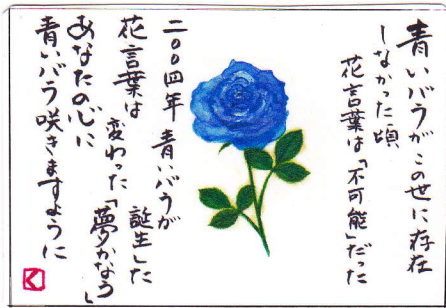 青いバラがこの世に存在
しなかった頃
花言葉は「不可能」だった
二〇〇四年 青いバラが
誕生した
花言葉は
変わった「夢かなう」
あなたの心に
青いバラ咲きますように